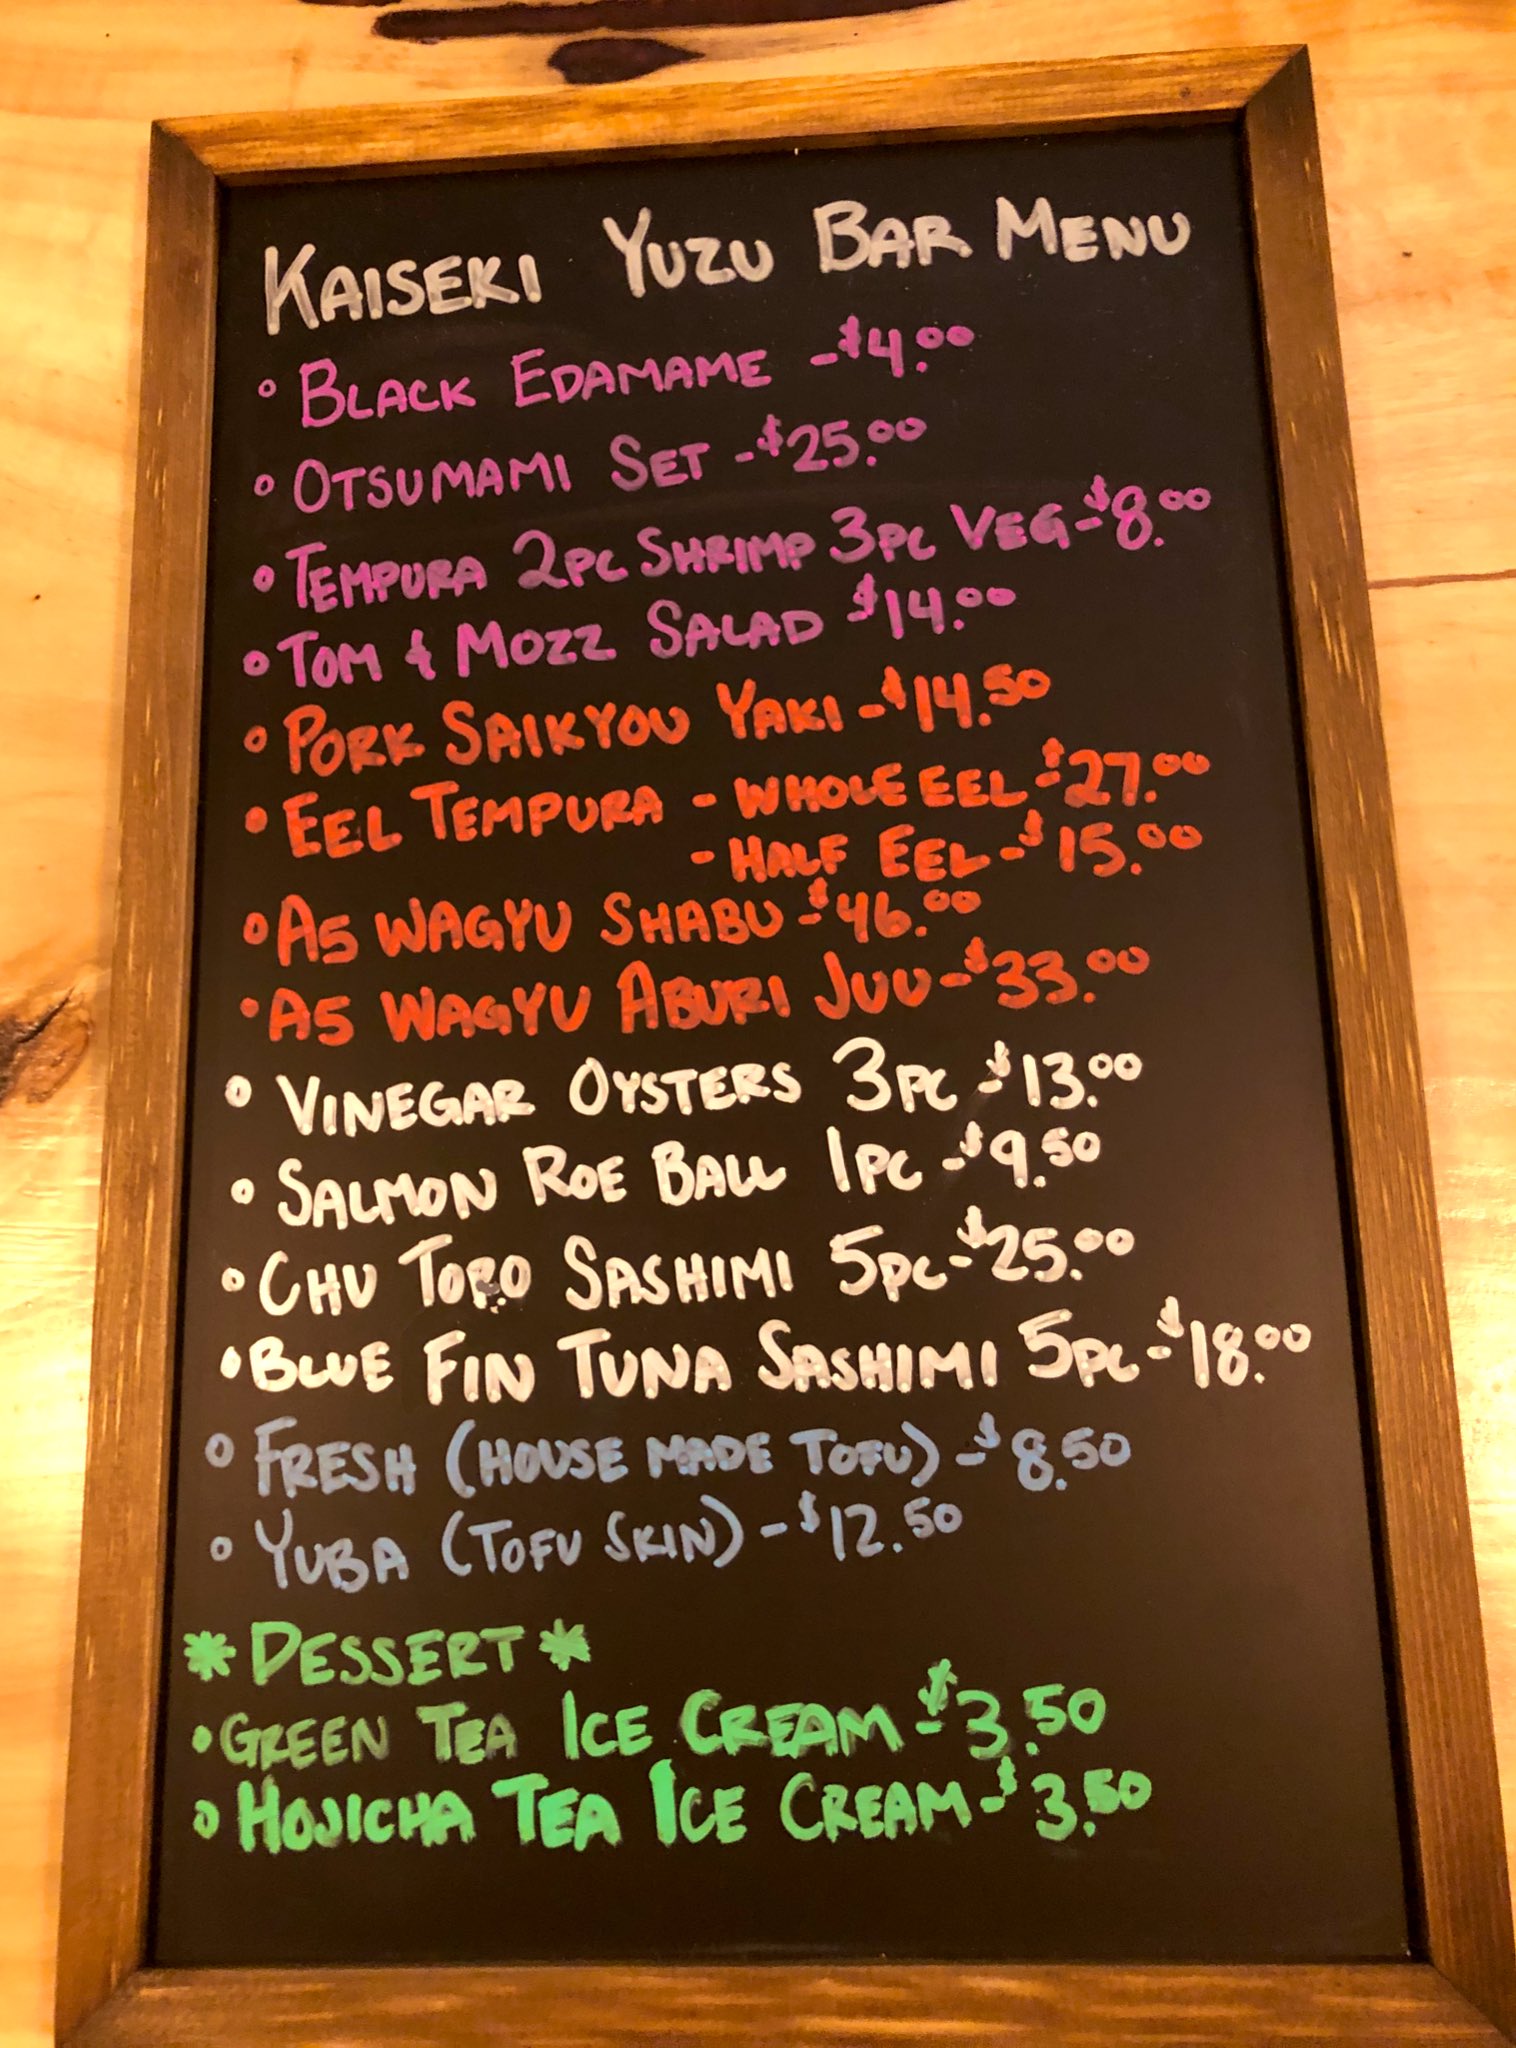 KAISEKI YUZU BAR MENU
° BLACK EDAMAME - $4.00
° OTSUMAMI SET - $25.00
° TEMPURA 2PC SHRIMP 3PC VEG - $8.00
° TOM & MOZZ SALAD $14.00
° PORK SAIKYOU YAKI - $14.50
• EEL TEMPURA - WHOLE EEL - $27.00
- HALF EEL - $15.00
° A5 WAGYU SHABU - $46.00
• A5 WAGYU ABURI JUU - $33.00
° VINEGAR OYSTERS 3PC - $13.00
° SALMON ROE BALL 1PC - $9.50
° CHU TORO SASHIMI 5PC - $25.00
• BLUE FIN TUNA SASHIMI 5PC - $18.00
° FRESH (HOUSE MADE TOFU) - $8.50
° YUBA (TOFU SKIN) - $12.50
* DESSERT *
• GREEN TEA ICE CREAM - $3.50
° HOJICHA TEA ICE CREAM - $3.50